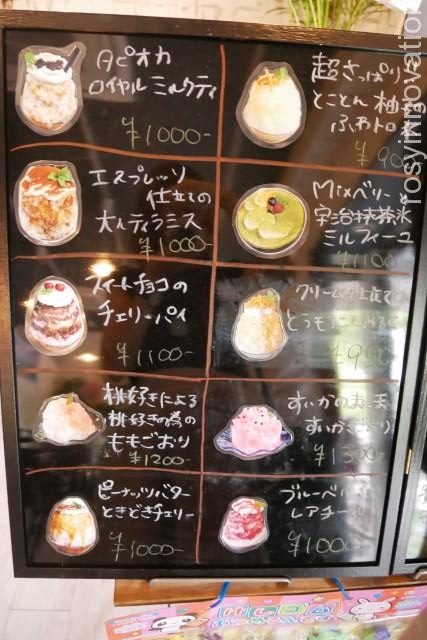 タピオカ
ロイヤルミルクティ
¥1000-
超さっぱり
とことん柚子
ふわトロ
¥90
エスプレッソ
仕立ての
大人ティラミス
¥1000-
Mixベリー
宇治抹茶氷
ミルフィーユ
¥1100-
スイートチョコの
チェリーパイ
¥1100-
クリーム仕立ての
とうもろこし
¥900
桃好きによる
桃好きの為の
ももごおり
¥1200-
すいかのまま
すいかごおり
¥1300-
ピーナッツバター
ときどきチェリー
¥1000-
ブルーベリー
レアチーズ
¥1000-
rosyinnovation